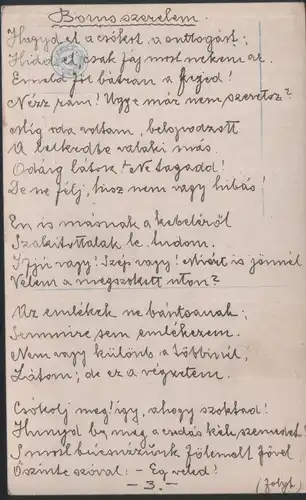 Boros szerelem.
Hagyd el a csókot, a suttogást;
Hidd el csak fáj most nekem az.
Emeld föl bátran a fejed!
Nézz rám! Ugye már nem szeretsz?
Míg oda voltam, belopodzott
A lelkedbe valaki más.
Odáig látok! Ne tagadd!
De ne félj, hisz nem vagy hibás!
Én is másnak a kebeléről
Szakítottalak le. Tudom.
Ifjú vagy! Szép vagy! Miért is jönnél
Velem a megszokott uton?
Az emlékek ne bántsanak;
Semmire sem emlékezem.
Nem vagy különb a többinél;
Látom; de ez a végzetem.
Csókolj meg! így, ahogy szoktad!
Hunyd be, meg a csodás kék szemedet!
S most búcsúzzunk fölemelt fővel.
Őszinte szóval: - Ég veled!
- 3. -
(folyt.)